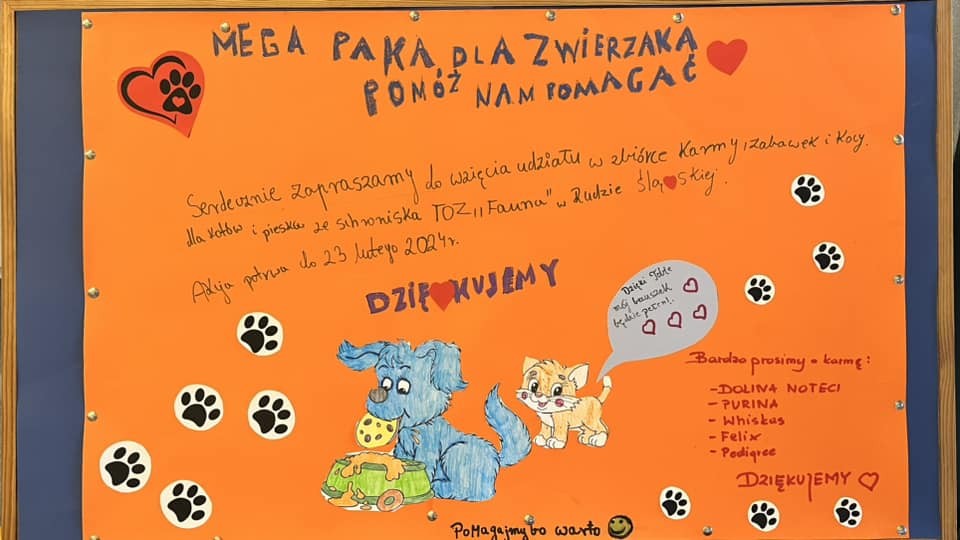 MEGA PAKA DLA ZWIERZAKA
POMÓŻ NAM POMAGAĆ
Serdecznie zapraszamy do wzięcia udziału w zbiórce karmy, zabawek i kocy
dla kotów i piesków ze schroniska TOZ „Fauna" w Rudzie Śląskiej.
Akcja potrwa do 23 lutego 2024r.
DZIĘKUJEMY
Dzięki Tobie
mój brzuszek
będzie pełen!
Bardzo prosimy o karmę:
- DOLINA NOTECI
- PURINA
- Whiskas
- Felix
- Pedigree
DZIĘKUJEMY
Pomagajmy bo warto